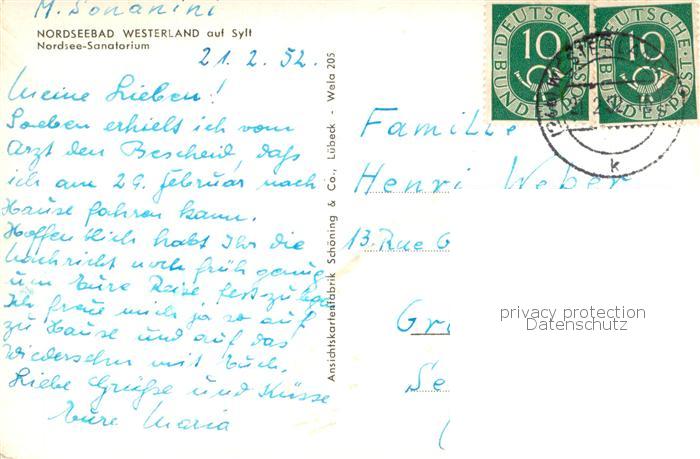 M. Sonanini
NORDSEEBAD WESTERLAND auf Sylt
Nordsee-Sanatorium
21. 2. 52.
Meine Lieben!
Soeben erhielt ich vom
Arzt den Bescheid, daß
ich am 29. Februar nach
Hause fahren kann.
Hoffentlich habt Ihr die
Nachricht noch früh genug
um Eure Reise festzulegen
Ich freue mich ja so auf
zu Hause und auf das
Wiedersehn mit Euch.
Liebe Grüße und Küsse
Eure Maria
Ansichtskartenfabrik Schöning & Co., Lübeck - Wela 205
DEUTSCHE BUNDESPOST
10
DEUTSCHE BUNDESPOST
10
k
Familie
Henri Weber
13. Rue G
Gr
Se
privacy protection
Datenschutz